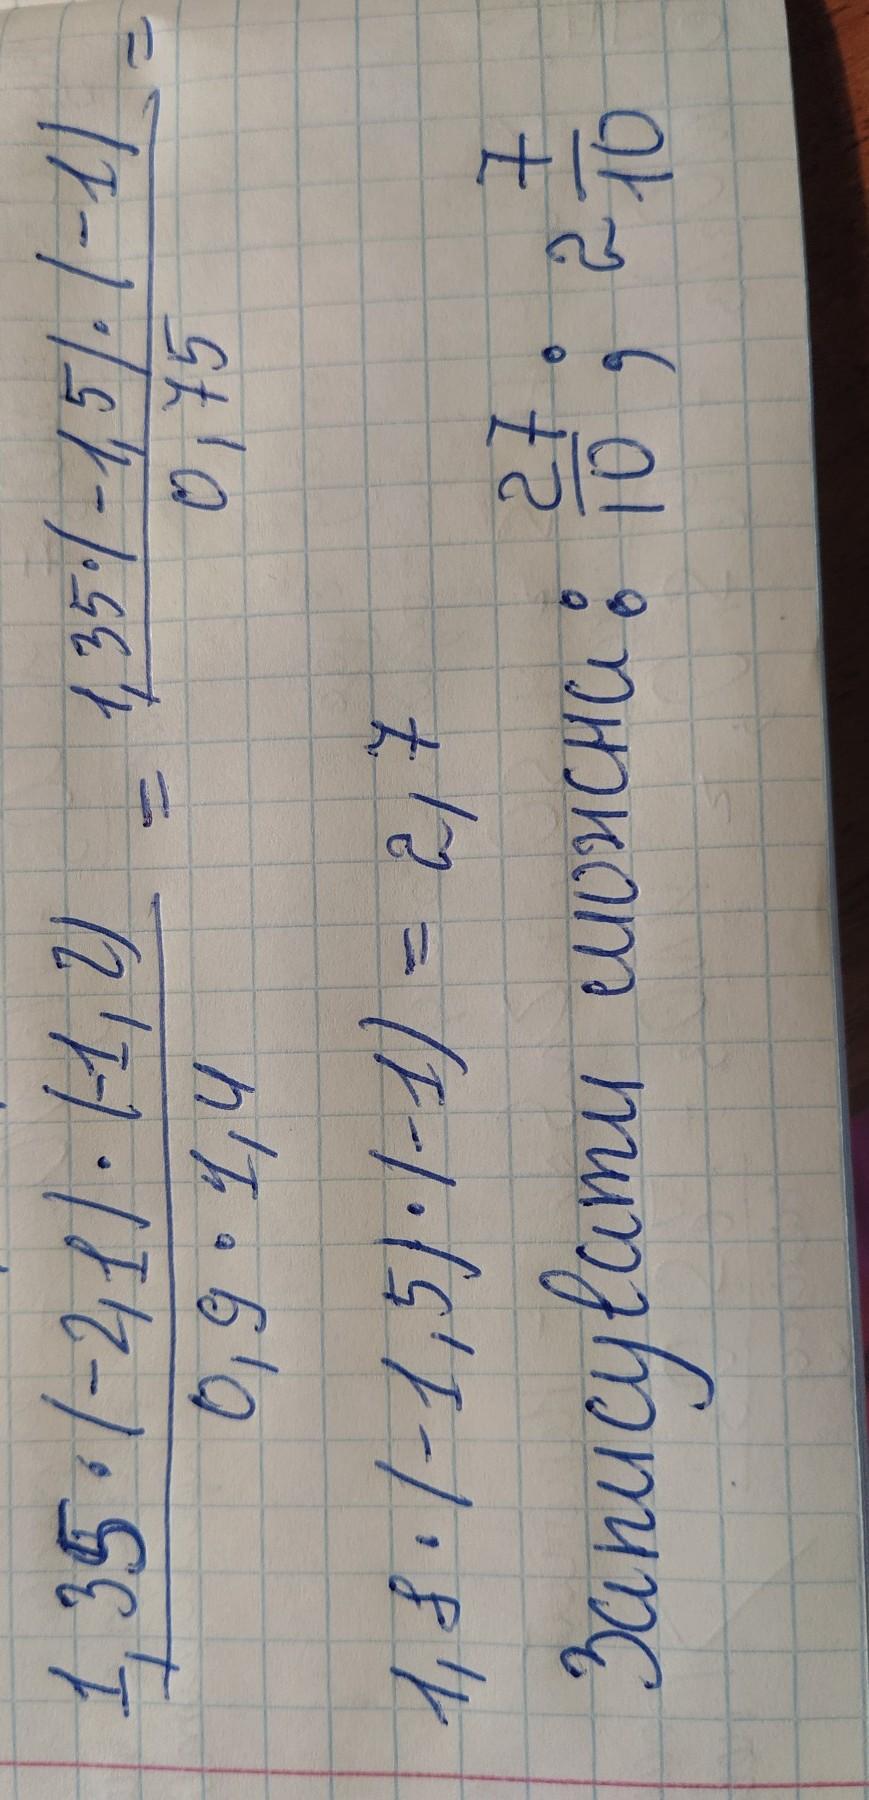 1,35·(-2,1)·(-1,2) / 0,9·1,4 = 1,35·(-1,5)·(-1) / 0,75 =
1,8·(-1,5)·(-1) = 2,7
Записувати можна: 27/10; 2 7/10